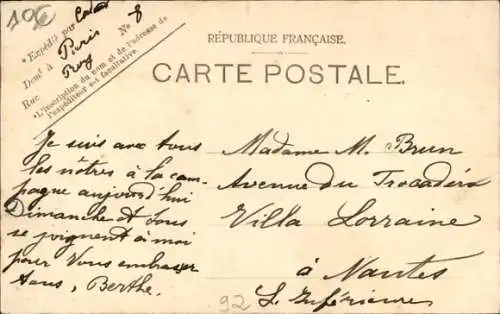 10€
RÉPUBLIQUE FRANÇAISE.
CARTE POSTALE.
*Expédié par
Demt à Paris
Rue Roy Nº 8
*L'inscription du nom et de l'adresse de
l'expéditeur est facultative.
Je suis avec tous
les nôtres à la cam-
pagne aujourd'hui
Dimanche et tous
se joignent à moi
pour vous embrasser
tous, Berthe.
Madame M. Brun
Avenue du Trocadéro
Villa Lorraine
à Nantes
L. Inférieure
92